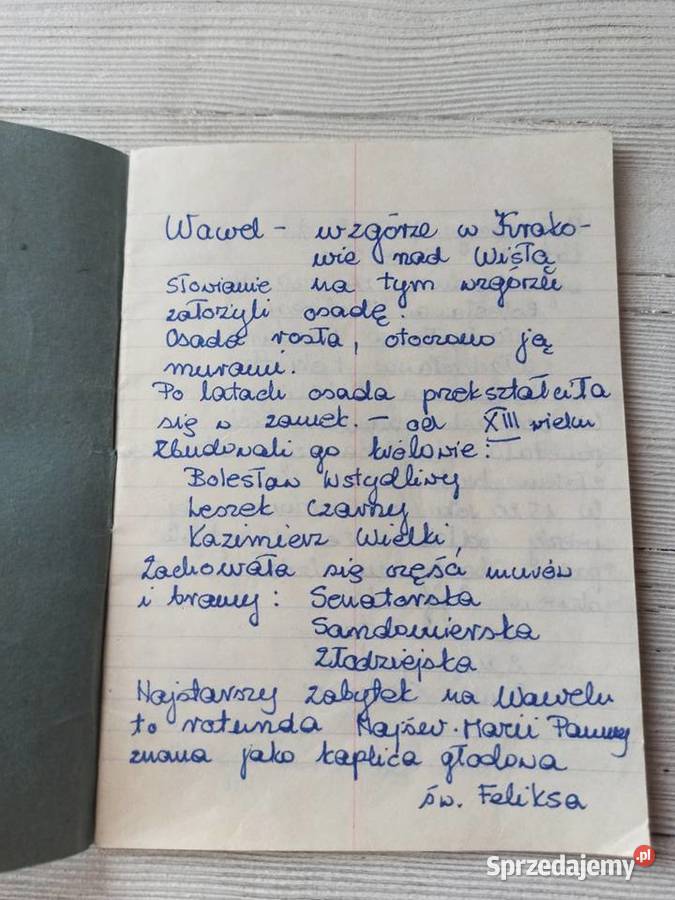 Wawel - wzgórze w Krako-
wie nad Wisłą
Słowianie na tym wzgórzu
założyli osadę.
Osada rosła, otoczono ją
murami.
Po latach osada przekształciła
się w zamek. - od XIII wieku
Zbudowali go królowie:
Bolesław Wstydliwy
Leszek Czarny
Kazimierz Wielki,
Zachowała się część murów
i bramy: Senatorska
Sandomierska
Złodziejska
Najstarszy zabytek na Wawelu
to rotunda Najśw. Marii Panny
znana jako kaplica głodowa
św. Feliksa
Sprzedajemy.pl